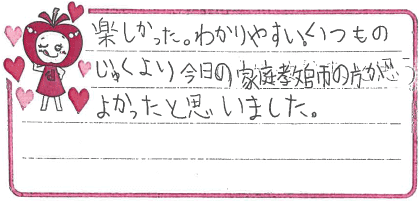 楽しかった。わかりやすい。いつもの
じゅくより今日の家庭教師の方が
よかったと思いました。